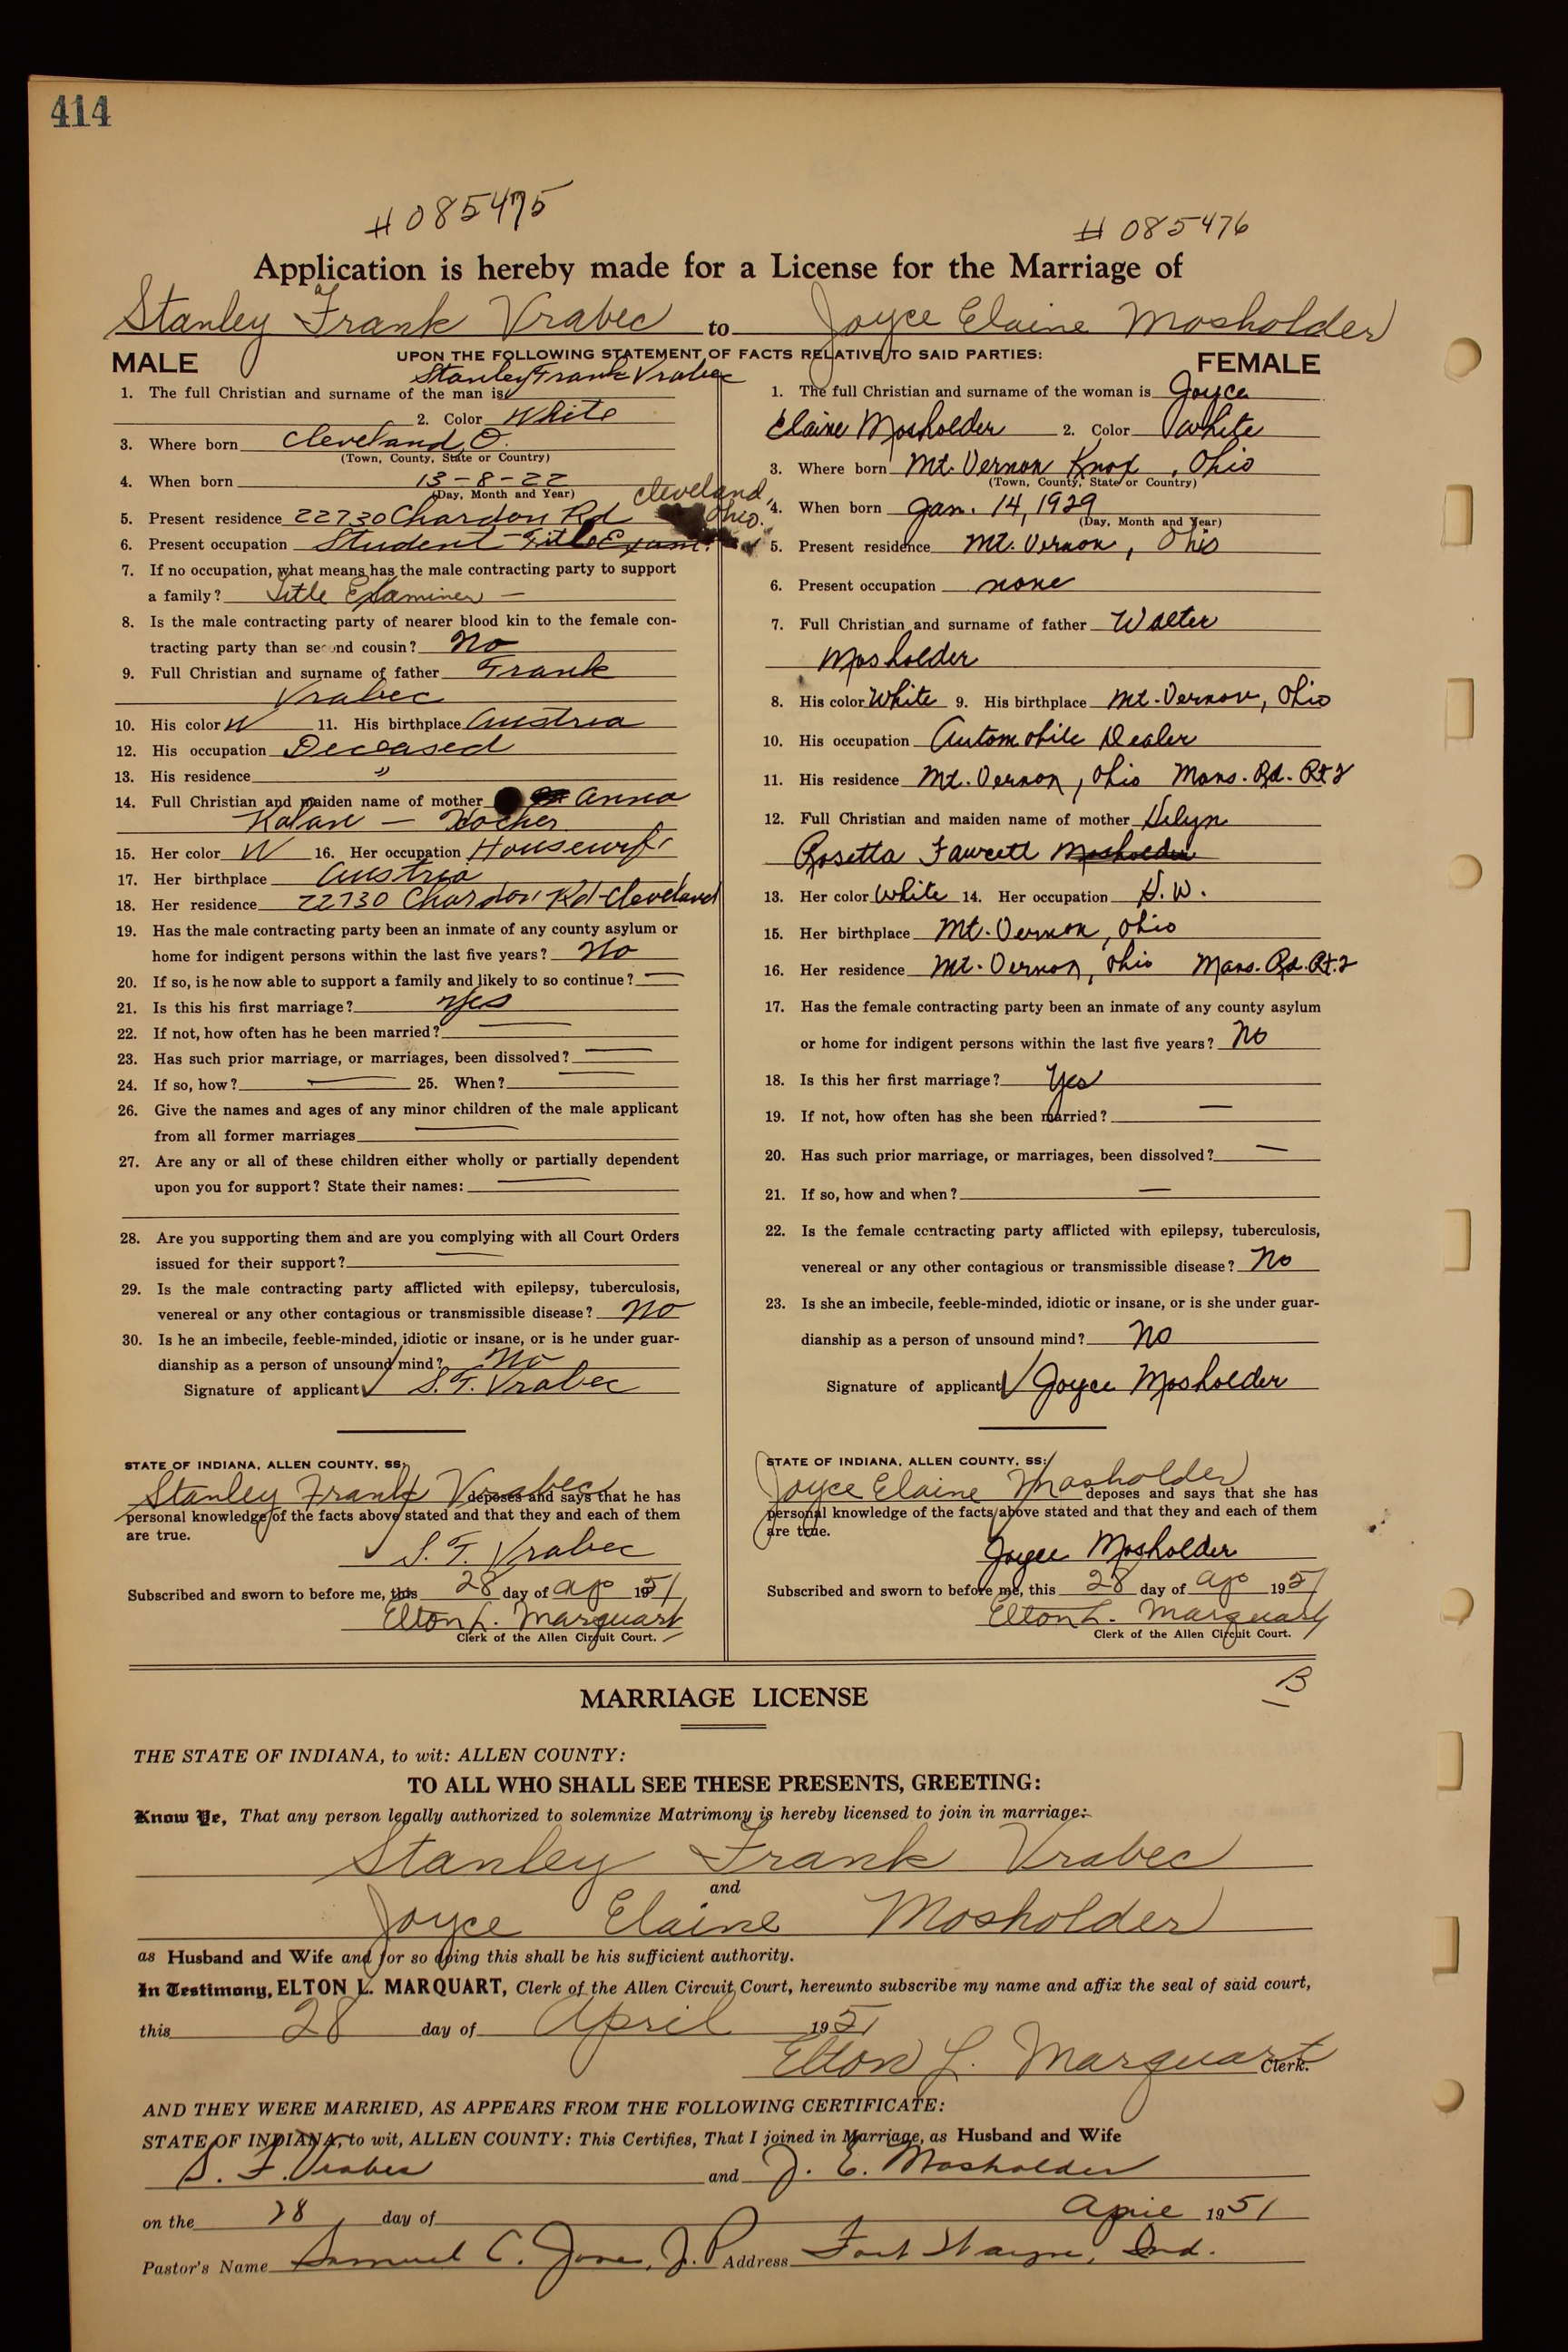 414
# 085475
# 085476
Application is hereby made for a License for the Marriage of
Stanley Frank Vrabec to Joyce Elaine Mosholder
UPON THE FOLLOWING STATEMENT OF FACTS RELATIVE TO SAID PARTIES:
MALE
1. The full Christian and surname of the man is Stanley Frank Vrabec
2. Color White
3. Where born Cleveland, O.
(Town, County, State or Country)
4. When born 13-8-22
(Day, Month and Year)
5. Present residence 22730 Chardon Rd Cleveland, Ohio.
6. Present occupation Student - Title Exam.
7. If no occupation, what means has the male contracting party to support
a family? Title Examiner -
8. Is the male contracting party of nearer blood kin to the female con-
tracting party than second cousin? No
9. Full Christian and surname of father Frank
Vrabec
10. His color W 11. His birthplace Austria
12. His occupation Deceased
13. His residence "
14. Full Christian and maiden name of mother Anna
15. Her color W 16. Her occupation Housewife
17. Her birthplace Austria
18. Her residence 22730 Chardon Rd-Cleveland
19. Has the male contracting party been an inmate of any county asylum or
home for indigent persons within the last five years? No
20. If so, is he now able to support a family and likely to so continue? —
21. Is this his first marriage? Yes
22. If not, how often has he been married? —
23. Has such prior marriage, or marriages, been dissolved? —
24. If so, how? — 25. When? —
26. Give the names and ages of any minor children of the male applicant
from all former marriages —
27. Are any or all of these children either wholly or partially dependent
upon you for support? State their names: —
28. Are you supporting them and are you complying with all Court Orders
issued for their support? —
29. Is the male contracting party afflicted with epilepsy, tuberculosis,
venereal or any other contagious or transmissible disease? No
30. Is he an imbecile, feeble-minded, idiotic or insane, or is he under guar-
dianship as a person of unsound mind? No
Signature of applicant S. F. Vrabec
STATE OF INDIANA, ALLEN COUNTY, SS:
Stanley Frank Vrabec deposes and says that he has
personal knowledge of the facts above stated and that they and each of them
are true.
S. F. Vrabec
Subscribed and sworn to before me, this 28 day of Ap 1951
Elton L. Marquart
Clerk of the Allen Circuit Court.
FEMALE
1. The full Christian and surname of the woman is Joyce
Elaine Mosholder 2. Color White
3. Where born Mt. Vernon Knox, Ohio
(Town, County, State or Country)
4. When born Jan. 14, 1929
(Day, Month and Year)
5. Present residence Mt. Vernon, Ohio
6. Present occupation none
7. Full Christian and surname of father Walter
Mosholder
8. His color White 9. His birthplace Mt. Vernon, Ohio
10. His occupation Automobile Dealer
11. His residence Mt. Vernon, Ohio Mans. Rd. Rt 2
12. Full Christian and maiden name of mother Helyn
Rosetta Fawcett Mosholder
13. Her color White 14. Her occupation H. W.
15. Her birthplace Mt. Vernon, Ohio
16. Her residence Mt. Vernon, Ohio Mans. Rd. Rt. 2
17. Has the female contracting party been an inmate of any county asylum
or home for indigent persons within the last five years? No
18. Is this her first marriage? Yes
19. If not, how often has she been married? —
20. Has such prior marriage, or marriages, been dissolved? —
21. If so, how and when? —
22. Is the female contracting party afflicted with epilepsy, tuberculosis,
venereal or any other contagious or transmissible disease? No
23. Is she an imbecile, feeble-minded, idiotic or insane, or is she under guar-
dianship as a person of unsound mind? No
Signature of applicant Joyce Mosholder
STATE OF INDIANA, ALLEN COUNTY, SS:
Joyce Elaine Mosholder deposes and says that she has
personal knowledge of the facts above stated and that they and each of them
are true.
Joyce Mosholder
Subscribed and sworn to before me, this 28 day of Ap 1951
Elton L. Marquart
Clerk of the Allen Circuit Court.
B
MARRIAGE LICENSE
THE STATE OF INDIANA, to wit: ALLEN COUNTY:
TO ALL WHO SHALL SEE THESE PRESENTS, GREETING:
Know Ye, That any person legally authorized to solemnize Matrimony is hereby licensed to join in marriage:
Stanley Frank Vrabec
and
Joyce Elaine Mosholder
as Husband and Wife and for so doing this shall be his sufficient authority.
In Testimony, ELTON L. MARQUART, Clerk of the Allen Circuit Court, hereunto subscribe my name and affix the seal of said court,
this 28 day of April 1951
Elton L. Marquart Clerk.
AND THEY WERE MARRIED, AS APPEARS FROM THE FOLLOWING CERTIFICATE:
STATE OF INDIANA, to wit, ALLEN COUNTY: This Certifies, That I joined in Marriage, as Husband and Wife
S. F. Vrabec and J. E. Mosholder
on the 28 day of April 1951
Pastor's Name Samuel C. Jones, J. P. Address Fort Wayne, Ind.